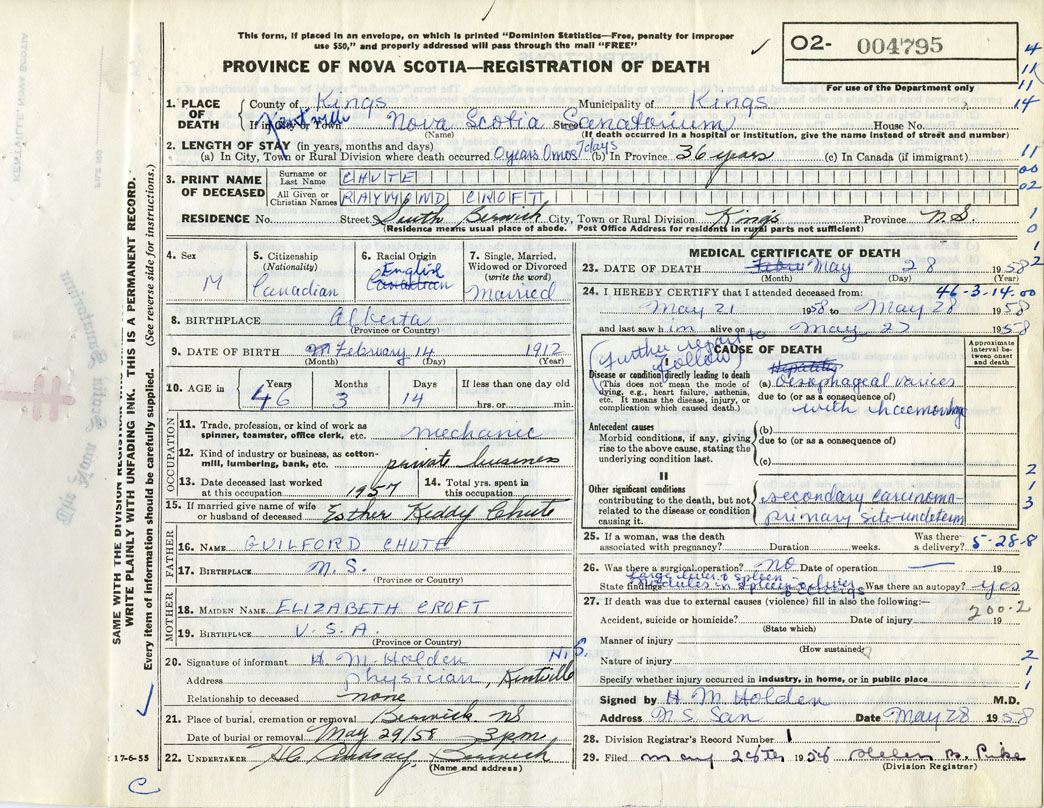 This form, if placed in an envelope, on which is printed "Dominion Statistics—Free, penalty for improper
use $50," and properly addressed will pass through the mail "FREE"
✓ O2- 004795
For use of the Department only
PROVINCE OF NOVA SCOTIA—REGISTRATION OF DEATH
4
1K
11
14
1. PLACE OF DEATH
County of Kings Municipality of Kings
If in City or Town Kentville Nova Scotia Sanatorium Street House No.
(Name) (If death occurred in a hospital or institution, give the name instead of street and number)
2. LENGTH OF STAY (in years, months and days)
(a) In City, Town or Rural Division where death occurred 0 years 0 mos 7 days (b) In Province 36 years (c) In Canada (if immigrant)
11
00
02
3. PRINT NAME OF DECEASED
Surname or Last Name CHUTE
All Given or Christian Names RAYMOND CROFT
RESIDENCE No. Street South Berwick City, Town or Rural Division Kings Province N.S.
(Residence means usual place of abode. Post Office Address for residents in rural parts not sufficient)
1
0
1
2
4. Sex M
5. Citizenship (Nationality) Canadian
6. Racial Origin English Canadian
7. Single, Married, Widowed or Divorced (write the word) Married
8. BIRTHPLACE Alberta
(Province or Country)
9. DATE OF BIRTH February 14 1912
(Month) (Day) (Year)
10. AGE in Years 46 Months 3 Days 14 If less than one day old hrs. or min.
OCCUPATION
11. Trade, profession, or kind of work as spinner, teamster, office clerk, etc. mechanic
12. Kind of industry or business, as cotton-mill, lumbering, bank, etc. private business
13. Date deceased last worked at this occupation 1957 14. Total yrs. spent in this occupation
15. If married give name of wife or husband of deceased Esther Keddy Chute
FATHER
16. NAME GUILFORD CHUTE
17. BIRTHPLACE N.S.
(Province or Country)
MOTHER
18. MAIDEN NAME ELIZABETH CROFT
19. BIRTHPLACE U.S.A.
(Province or Country)
20. Signature of informant H. M. Holden N.S.
Address physician, Kentville
Relationship to deceased none
21. Place of burial, cremation or removal Berwick NS
Date of burial or removal May 29/58 3pm
22. UNDERTAKER Lindsay, Berwick
(Name and address)
MEDICAL CERTIFICATE OF DEATH
23. DATE OF DEATH May 28 1958
(Month) (Day) (Year)
46-3-14.00
24. I HEREBY CERTIFY that I attended deceased from:
May 21 1958 to May 28 1958
and last saw him alive on May 27 1958
(further report to follow)
CAUSE OF DEATH
Approximate interval between onset and death
I
Disease or condition directly leading to death
(This does not mean the mode of dying, e.g., heart failure, asthenia, etc. It means the disease, injury, or complication which caused death.)
Hepatitis
(a) Oesophageal varices
due to (or as a consequence of)
with haemorrhage
Antecedent causes
Morbid conditions, if any, giving rise to the above cause, stating the underlying condition last.
(b)
due to (or as a consequence of)
(c)
II
Other significant conditions
contributing to the death, but not related to the disease or condition causing it.
secondary carcinoma
primary site-undeterm
2
1
3
25. If a woman, was the death associated with pregnancy? Duration weeks. Was there a delivery?
5-28-8
26. Was there a surgical operation? no Date of operation — 19
State findings Large liver & spleen
nodules in spleen & liver
Was there an autopsy? yes
27. If death was due to external causes (violence) fill in also the following:—
200-2
Accident, suicide or homicide? Date of injury 19
(State which)
Manner of injury
(How sustained)
Nature of injury
Specify whether injury occurred in industry, in home, or in public place
2
1
1
Signed by H. M. Holden M.D.
Address N.S. San Date May 28 1958
28. Division Registrar's Record Number 1
29. Filed May 28th 1958 Helen B. Pike
(Division Registrar)
17-6-55
C
SAME WITH THE DIVISION
WRITE PLAINLY WITH UNFADING INK. THIS IS A PERMANENT RECORD.
Every item of information should be carefully supplied. (See reverse side for instructions.)
The Nova Scotia Sanatorium
KENTVILLE, NOVA SCOTIA
FILE NO